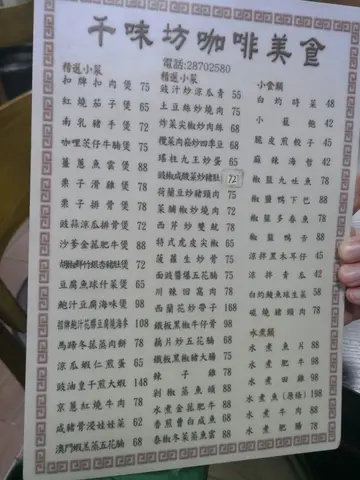 千味坊咖啡美食
電話:28702580
精選小菜
扣牌扣肉煲 75
紅燒茄子煲 65
南乳豬手煲 72
咖哩茨仔牛腩煲 75
薑蔥魚雲煲 98
栗子滑雞煲 78
栗子排骨煲 78
豉蒜涼瓜排骨煲 72
沙爹金菇肥牛煲 88
胡椒鮮竹銀杏豬肚煲 72
豆腐魚球什菜煲 65
鮑汁豆腐海味煲 98
招牌鮑汁花膠豆腐燒海參 108
馬蹄冬菇蒸肉餅 78
涼瓜蝦仁煎蛋 65
豉油皇干煎大蝦 148
京蔥紅燒牛肉 78
咸豬骨浸娃娃菜 72
澳門蝦羔蒸五花腩 68
精選小菜
豉汁炒涼瓜青 55
土豆絲炒燒肉 75
炸菜尖椒炒肉絲 68
欖菜肉崧炒四季豆 68
瑤柱九王炒蛋 65
豉椒咸酸菜炒豬肚 72
荷蘭豆炒豬頸肉 75
菜脯椒炒燒肉 72
西芹炒雙魷 78
特式虎皮尖椒 65
菠蘿生炒骨 75
面豉醬爆五花腩 75
川辣回窩肉 78
西蘭花炒帶子 168
鐵板黑椒牛仔骨 98
藕片炒五花腩 68
鐵板黑椒豬大腸 75
辣子雞 78
剁椒蒸魚頭 88
水煮金菇肥牛 88
香煎曹白咸魚 68
泰椒冬菜蒸魚雲 88
小食類
白灼時菜 48
小籠飽 42
脆皮煎餃子 45
麻辣海晢 42
椒鹽九吐魚 78
椒鹽鴨下巴 88
椒鹽多春魚 78
椒鹽鴨舌 88
涼拌黑木耳仔 45
涼拌青瓜 42
白灼鯪魚球生菜 58
碳燒豬頸肉 78
水煮類
水煮魚片 88
水煮肥牛 98
水煮田雞 98
水煮魚(原條) 198
水煮牛肉 88
水煮肥腸 78